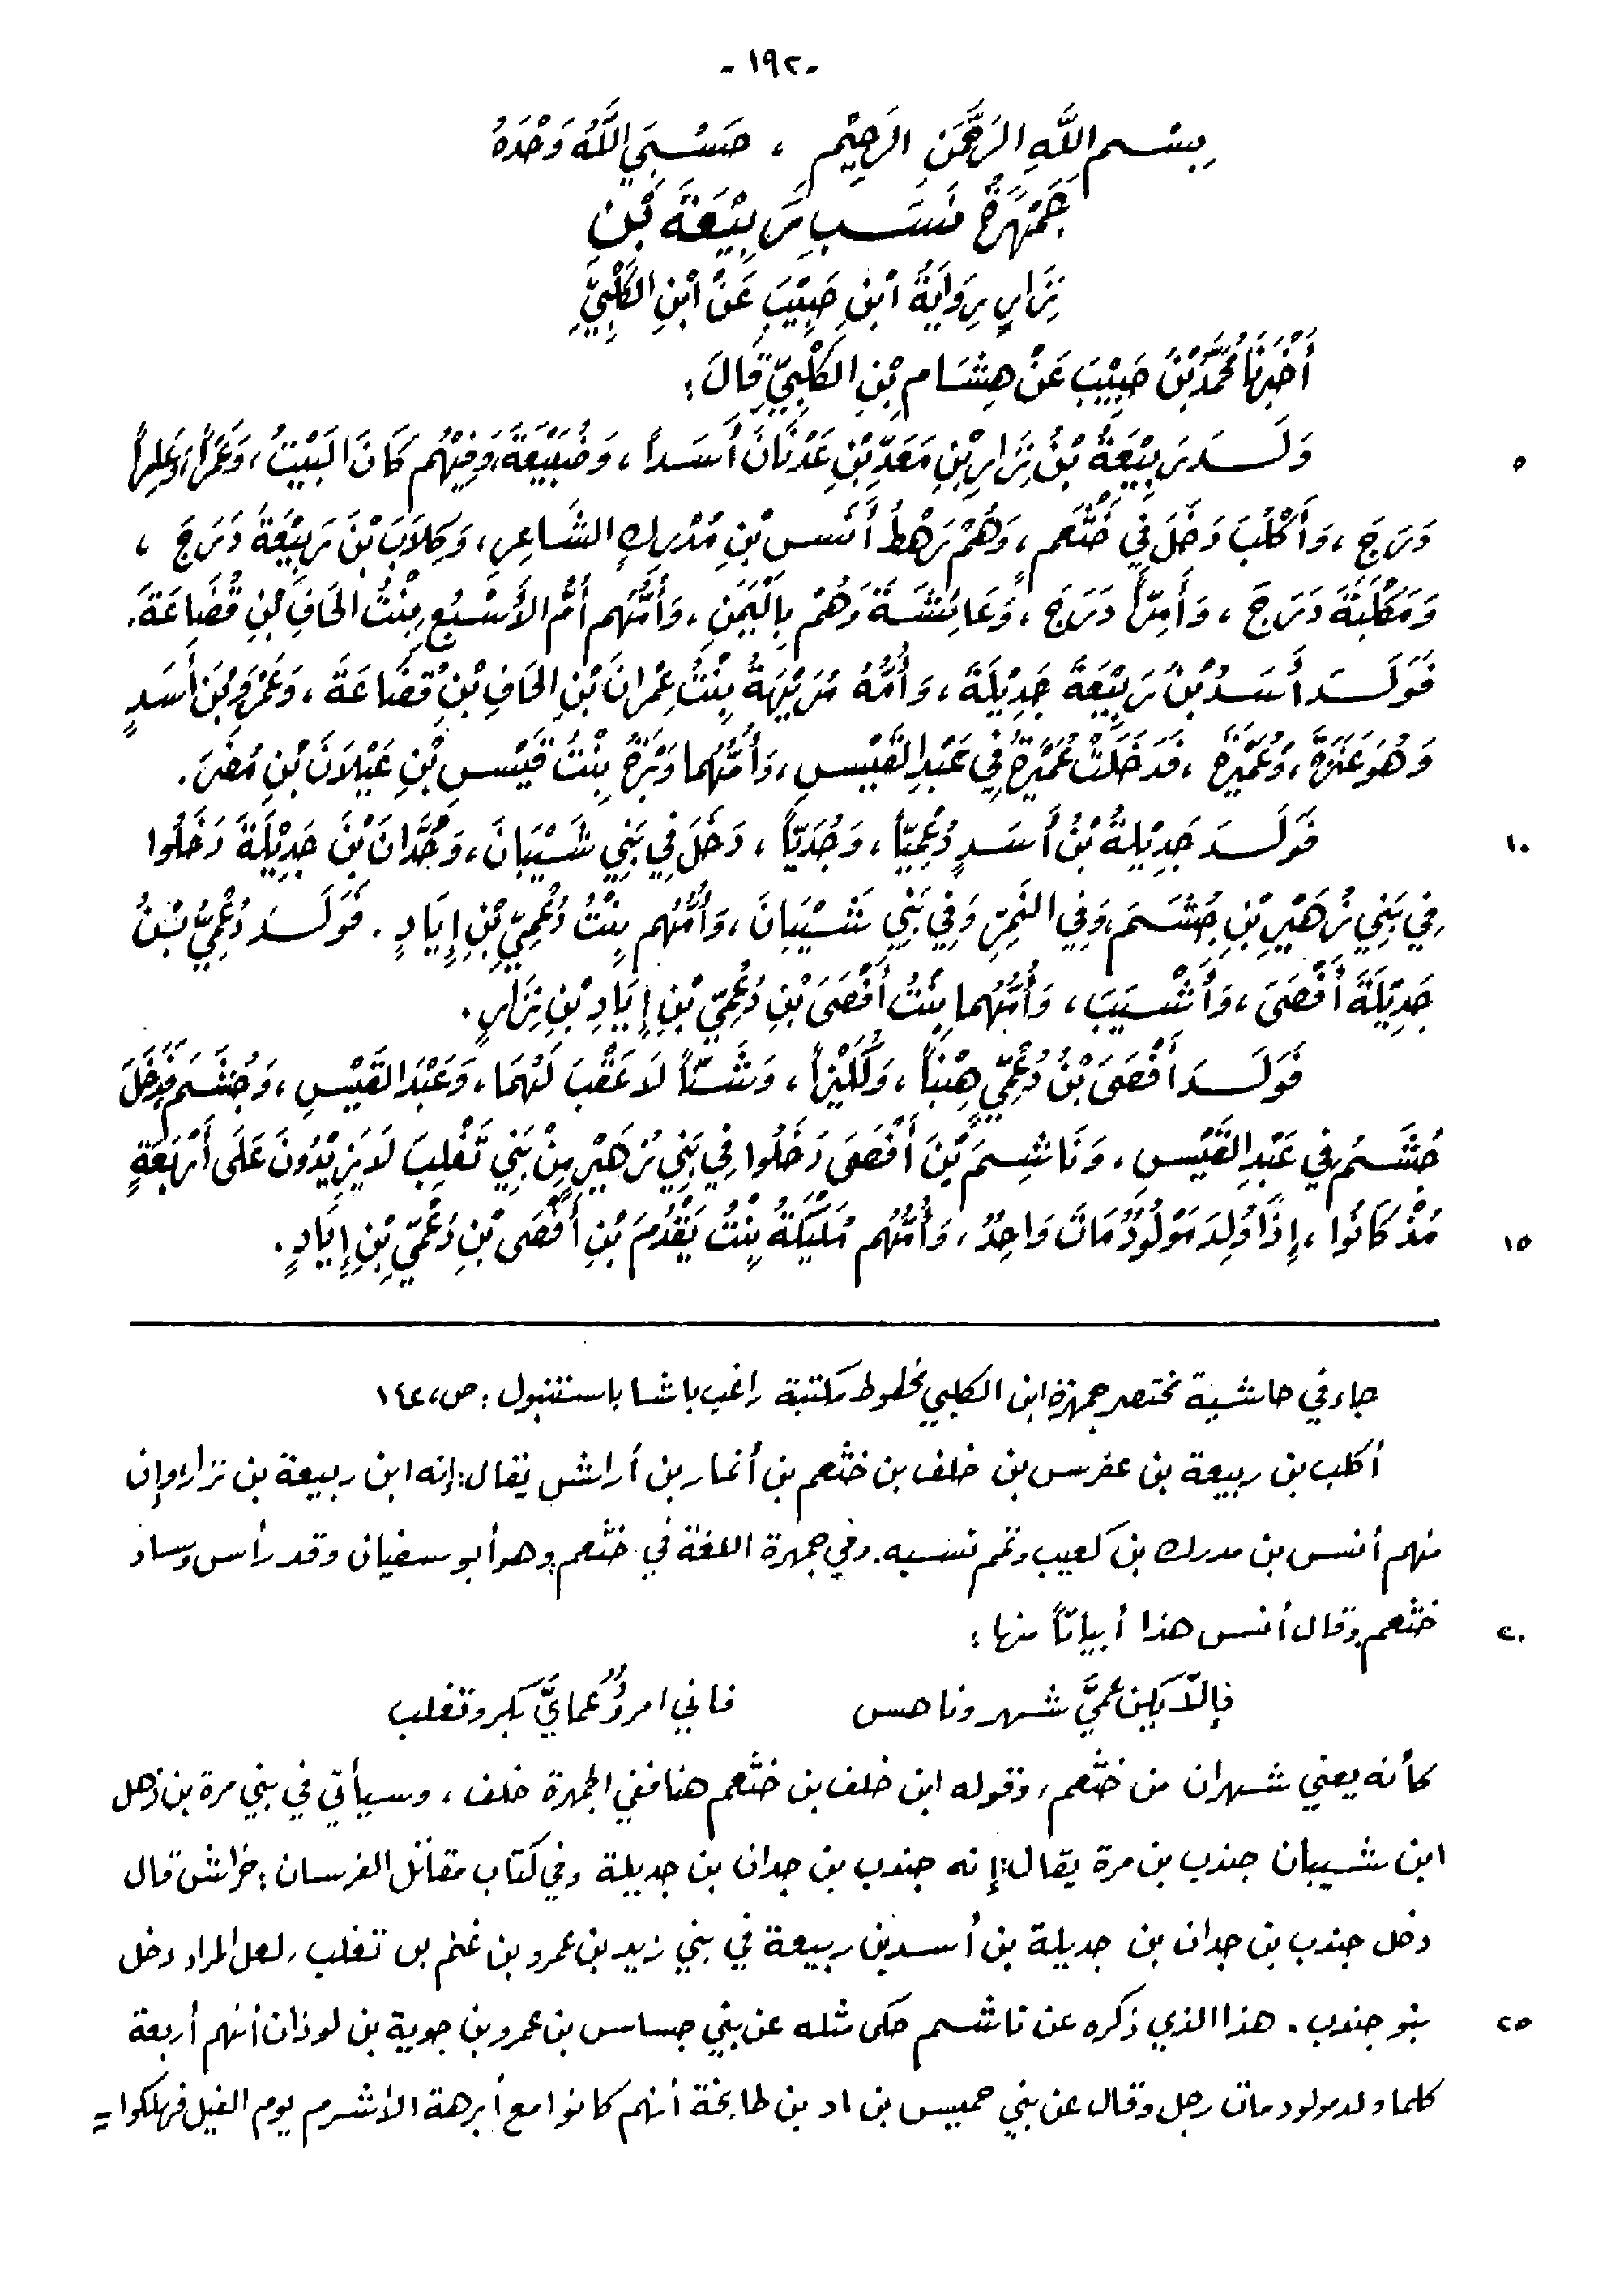 -١٩٢-
بِسْمِ اللَّهِ الرَّحْمَنِ الرَّحِيْمِ ، حَسْبِيَ اللَّهُ وَحْدَهُ
جَمْهَرَةُ نَسَبِ رَبِيْعَةَ بْنِ
نِزَارٍ بِرِوَايَةُ ابْنِ حَبِيْبَ عَنْ ابْنِ الكَلْبِيِّ
أَخْبَرَنَا مُحَمَّدُ بْنُ حَبِيْبَ عَنْ هِشَامِ بْنِ الكَلْبِيِّ قَالَ:
وَلَــدَ رَبِيْعَةُ بْنُ نِزَارِ بْنِ مَعَدِّ بْنِ عَدْنَانَ أَسَداً ، وَضُبَيْعَةَ، وَفِيْهُم كَانَ البَيْتُ، وَعَمْراً، وَعَامِراً ٥
دَرَجَ ، وَأَكْلُبَ دَخَلَ فِي خَثْعَمٍ ، وَهُمْ رَهْطُ أَنَسِ بْنِ مُدْرِكٍ الشَّاعِرِ ، وَكِلاَبَ بْنَ رَبِيْعَةَ دَرَجَ ،
وَمَكْلَبَةَ دَرَجَ ، وَأَمِرَّاً دَرَجَ ، وَعَائِشَةَ وَهُمْ بِاليَمَنِ ، وَأُمُّهُم أُمُّ الأَسْبُعِ بِنْتُ الحَافِ بْنِ قُضَاعَةَ .
فَوَلَــدَ أَسَدُ بْنُ رَبِيْعَةَ جَدِيْلَةَ ، وَأُمُّهُ مُزَيْهَةُ بِنْتُ عِمْرَانَ بْنِ الحَافِ بْنِ قُضَاعَةَ ، وَعَمْرَو بْنَ أَسَدٍ
وَهُوَ عَنَزَةُ ، وَعُمَيْرَةَ ، فَدَخَلَتْ عُمَيْرَةُ فِي عَبْدِ القَيْسِ ، وَأُمُّهُما وَبْرَةُ بِنْتُ قَيْسِ بْنِ عَيْلَانَ بْنِ مُضَرَ .
فَوَلَــدَ جَدِيْلَةُ بْنُ أَسَدٍ دُعْمِيّاً ، وَجُدَيّاً ، دَخَلَ فِي بَنِي شَيْبَانَ ، وَجُدَّانَ بْنَ جَدِيْلَةَ دَخَلُوا ١٠
فِي بَنِي زُهَيْرِ بْنِ جُشَمَ وَفِي النَّمِرِ وَفِي بَنِي شَيْبَانَ ، وَأُمُّهُم بِنْتُ دُعْمِيِّ بْنِ إِيَادٍ . فَوَلَــدَ دُعْمِيُّ بْنُ
جَدِيْلَةَ أَفْصَى ، وَأَشْيَبَ ، وَأُمُّهُما بِنْتُ أَفْصَى بْنِ دُعْمِيِّ بْنِ إِيَادِ بْنِ نِزَارٍ .
فَوَلَــدَ أَفْصَى بْنُ دُعْمِيِّ هِنْباً ، وَلُكَيْزاً ، وَشَنّاً لاَ عَقْبَ لَهُمَا ، وَعَبْدَ القَيْسِ ، وَجُشَمَ فَدَخَلَ
جُشَمُ فِي عَبْدِ القَيْسِ ، وَنَاشِمَ بْنَ أَفْصَى دَخَلُوا فِي بَنِي زُهَيْرٍ مِنْ بَنِي تَغْلِبَ لَا يَزِيْدُونَ عَلَى أَرْبَعَةٍ
مُذْ كَانُوا ، إِذَا وُلِدَ مَوْلُودٌ مَاتَ وَاحِدٌ ، وَأُمُّهُم مُلَيْكَةُ بِنْتُ يَقْدُمَ بْنِ أَفْصَى بْنِ دُعْمِيِّ بْنِ إِيَادٍ . ١٥
جاء في حاشية مختصر جمهرة ابن الكلبي مخطوط مكتبة راغب باشا باستنبول : ص، ١٤٧
أكلب بن ربيعة بن عفرس بن خلف بن خثعم بن أنمار بن أراش يقال: إنه ابن ربيعة بن نزار، وإن
منهم أنس بن مدرك بن كعيب وتمم نسبه. وفي جمهرة اللغة في خثعم وهو أبو سفيان وقد رأس وساد
خثعم وقال أنس هذا أبياتاً منها : ٢٠
فإلّا يكن عميَّ شهر وناهس فإني امرؤٌ عمايَّ بكر وتغلب
كأنه يعني شهران من خثعم، وقوله ابن خلف بن خثعم هنا ففي الجمهرة خلف ، وسيأتي في بني مرة بن ذهل
ابن شيبان جندب بن مرة يقال: إنه جندب بن جدان بن جديلة وفي كتاب مقاتل الفرسان : خراش قال
دخل جندب بن جدان بن جديلة بن أسد بن ربيعة في بني زيد بن عمرو بن غنم بن تغلب، لعل المراد دخل
بنو جندب . هذا الذي ذكره عن ناشم حكى مثله عن بني جساس بن عمرو بن جوية بن لوذان أنهم أربعة ٢٥
كلما ولد مولود مات رجل وقال عن بني حميس بن اد بن طابخة أنهم كانوا مع أبرهة الأشرم يوم الفيل فهلكوا =